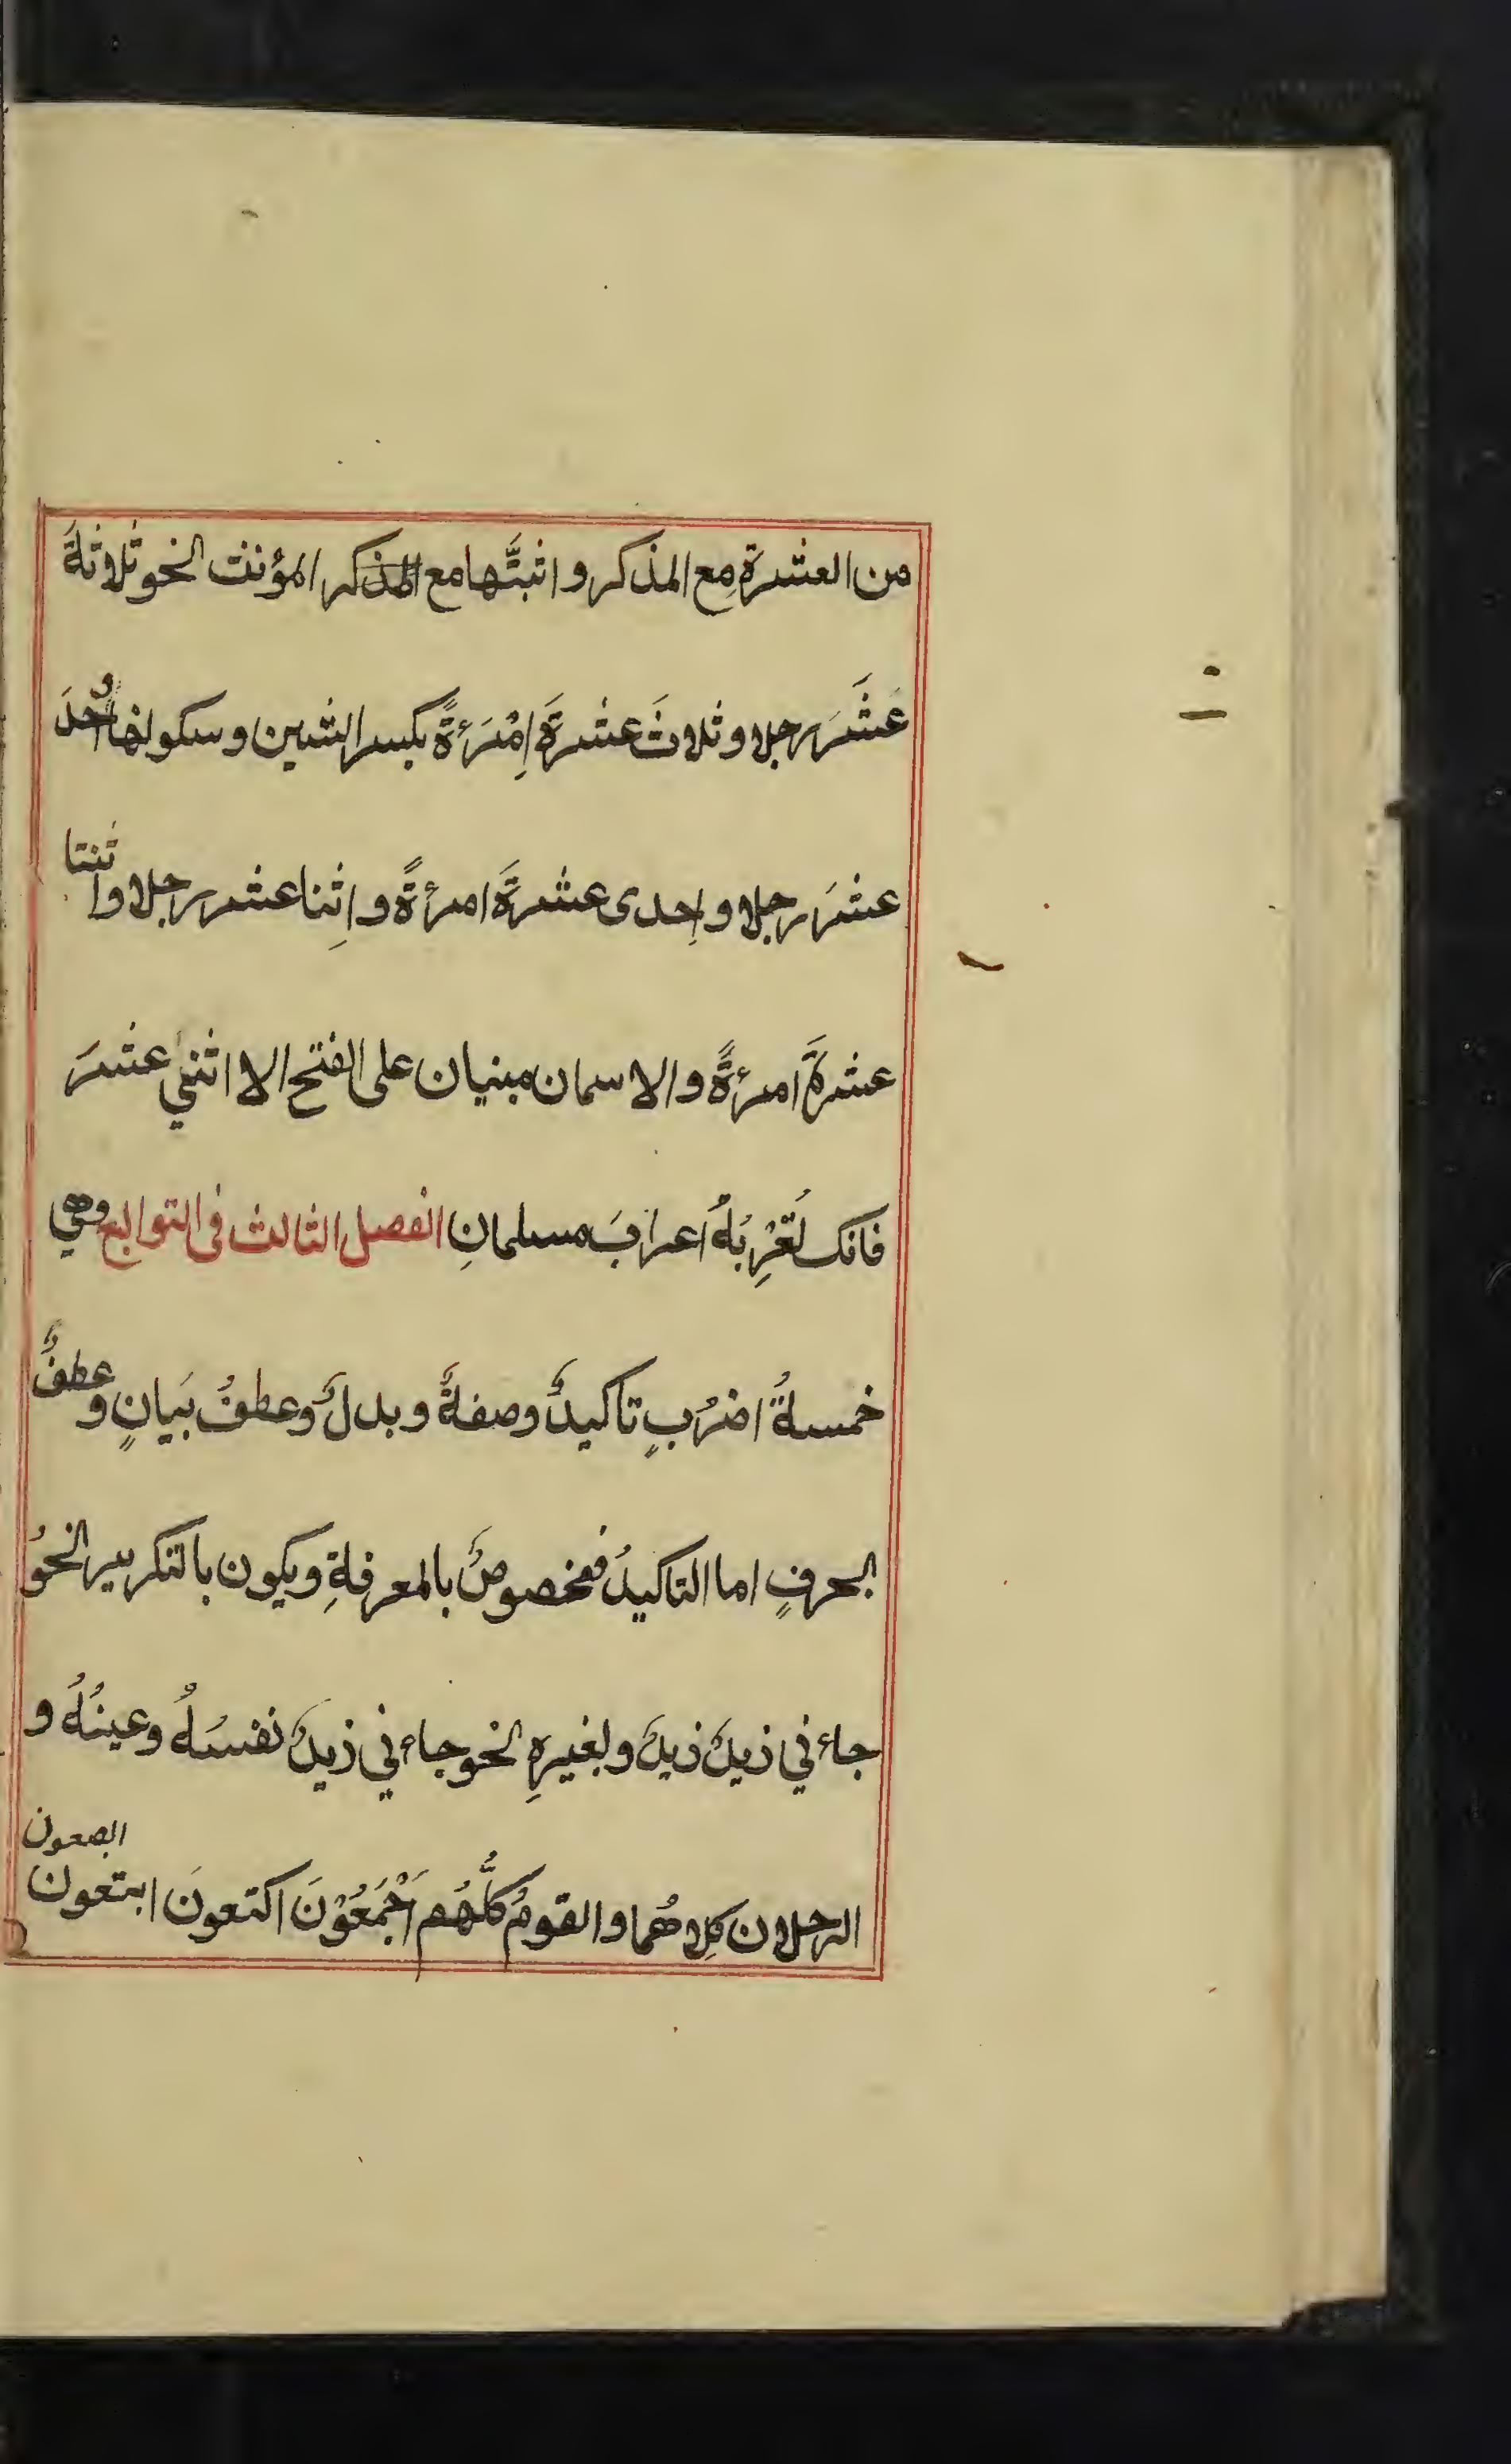 من العشرة مع المذكر واثبتَّها مع المذكر المؤنث نحو ثلاثةَ
عَشَرَ رجلا وثلاثَ عشرةَ اِمْرَءَةً بكسر الشين وسكونها واَحدَ
عشرَ رجلا واِحدى عشرةَ امرءةً واِثنا عشر رجلا واثنتا
عشرةَ امرءةً والاسمان مبنيان على الفتح الا اثني عشرَ
فانك تُعْرِبُهُ اعرابَ مسلمانِ الفصل الثالث فى التوابع وهي
خمسةُ اضرُبٍ تاكيدٌ وصفةٌ وبدلٌ وعطفُ بَيانٍ وعطفٌ
بحرفٍ اما التاكيدُ فمخصوصٌ بالمعرفةِ ويكون بالتكرير نحوُ
جاءني زيدٌ زيدٌ ولغيرهِ نحو جاءني زيدٌ نفسُهُ وعينُهُ و
الرجلان كِلاهُما والقومُ كلُّهُم اَجْمَعُوْنَ اكتعونَ ابتعون
ابصعون